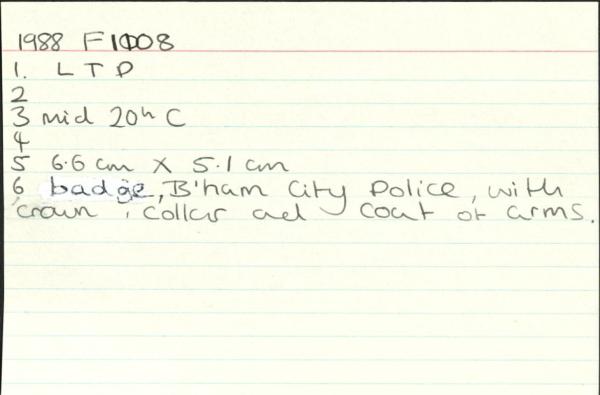 1988 F1008
1. L T D
2
3 mid 20th C
4
5 6.6 cm X 5.1 cm
6 badge, B'ham City Police, with
crown, collar and coat of arms.